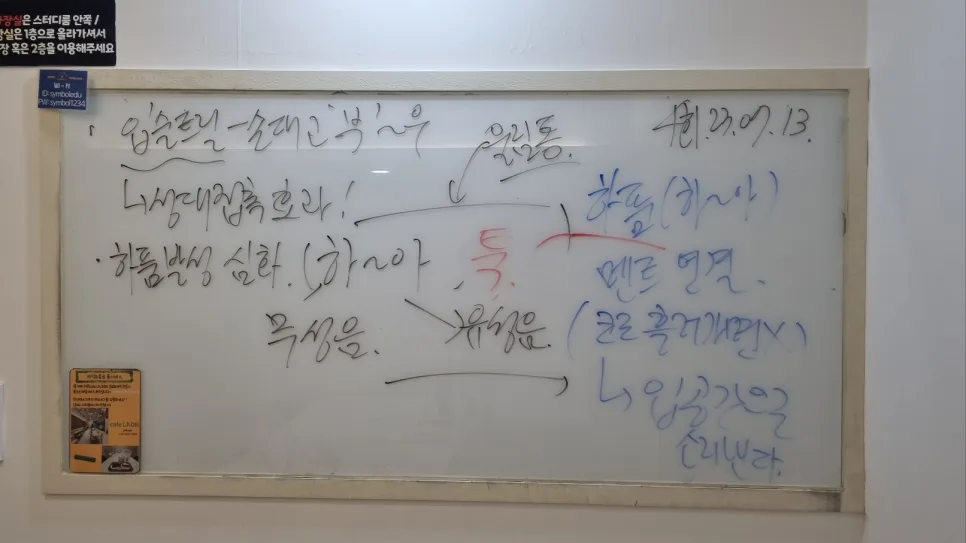 화장실은 스터디룸 안쪽 /
장실은 1층으로 올라가셔서
장 혹은 2층을 이용해주세요
ID: symboledu
PW: symbol1234
· 입술트릴 - 손대고 '부'~우
울림통.
4회. 23. 07. 13.
↳ 성대접촉 효과!
하품 (하~아)
· 하품발성 심화. (하~아
툭.
멘트 연결.
무성음.
유성음.
(코로 흘러가면 X)
↳ 입공간으로
소리낸다.